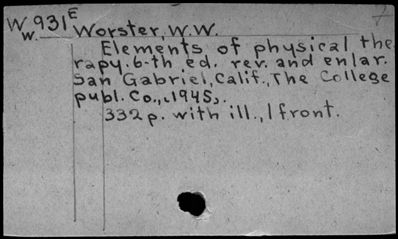 W 931 E Worster, W.W.
W.
Elements of physical the
rapy. 6-th ed. rev. and enlar.
San Gabriel, Calif., The College
publ. Co., c1945>.
332 p. with ill., 1 front.